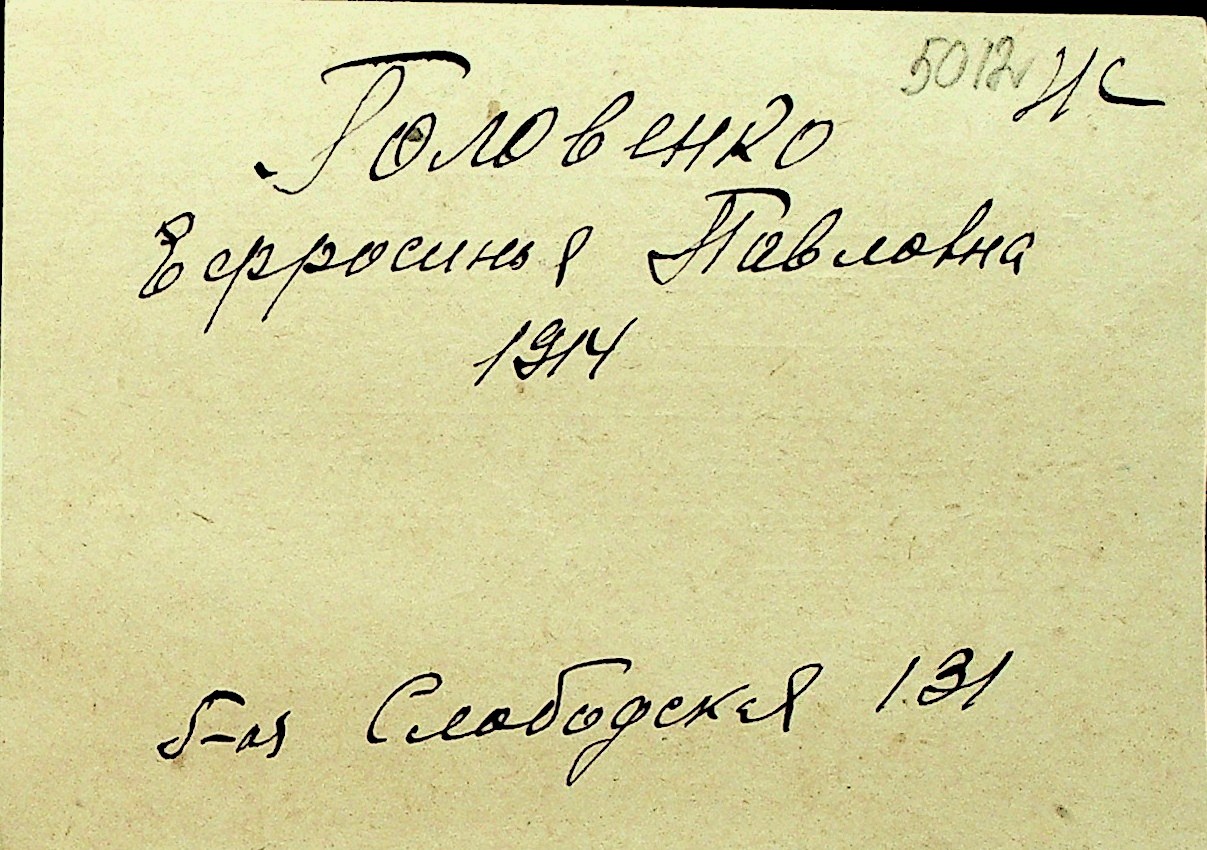 5012 НС
Головенко
Ефросинья Павловна
1914
5-ая Слободская 131